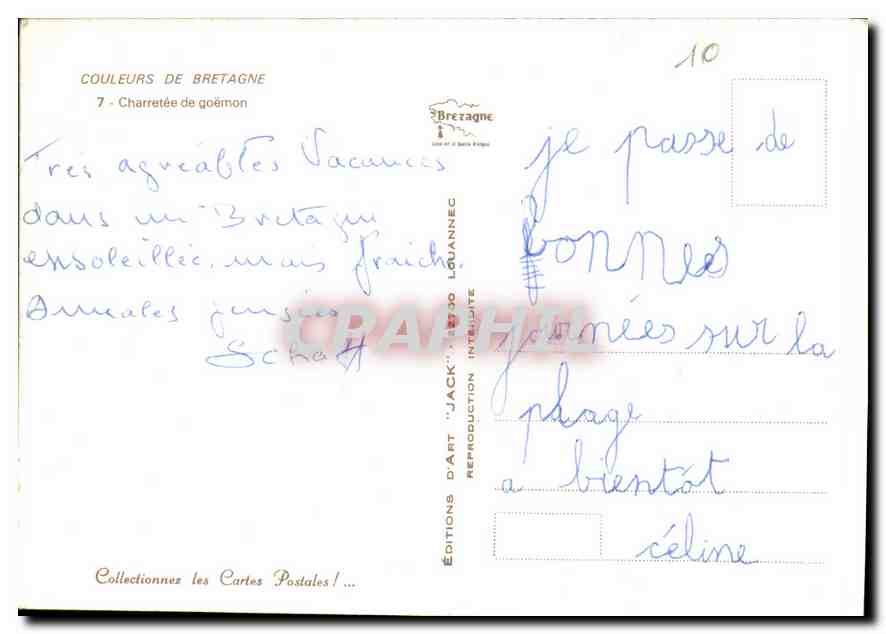 10
COULEURS DE BRETAGNE
7 - Charretée de goëmon
Bretagne
Très agréables Vacances
dans un Bretagne
ensoleillée, mais fraiche.
Amicales pensées
Schaff
CPAPHIL
ÉDITIONS D'ART "JACK" - 22700 LOUANNEC
REPRODUCTION INTERDITE
je passe de
bonnes
journées sur la
plage
a bientôt
céline
Collectionnez les Cartes Postales ! ...